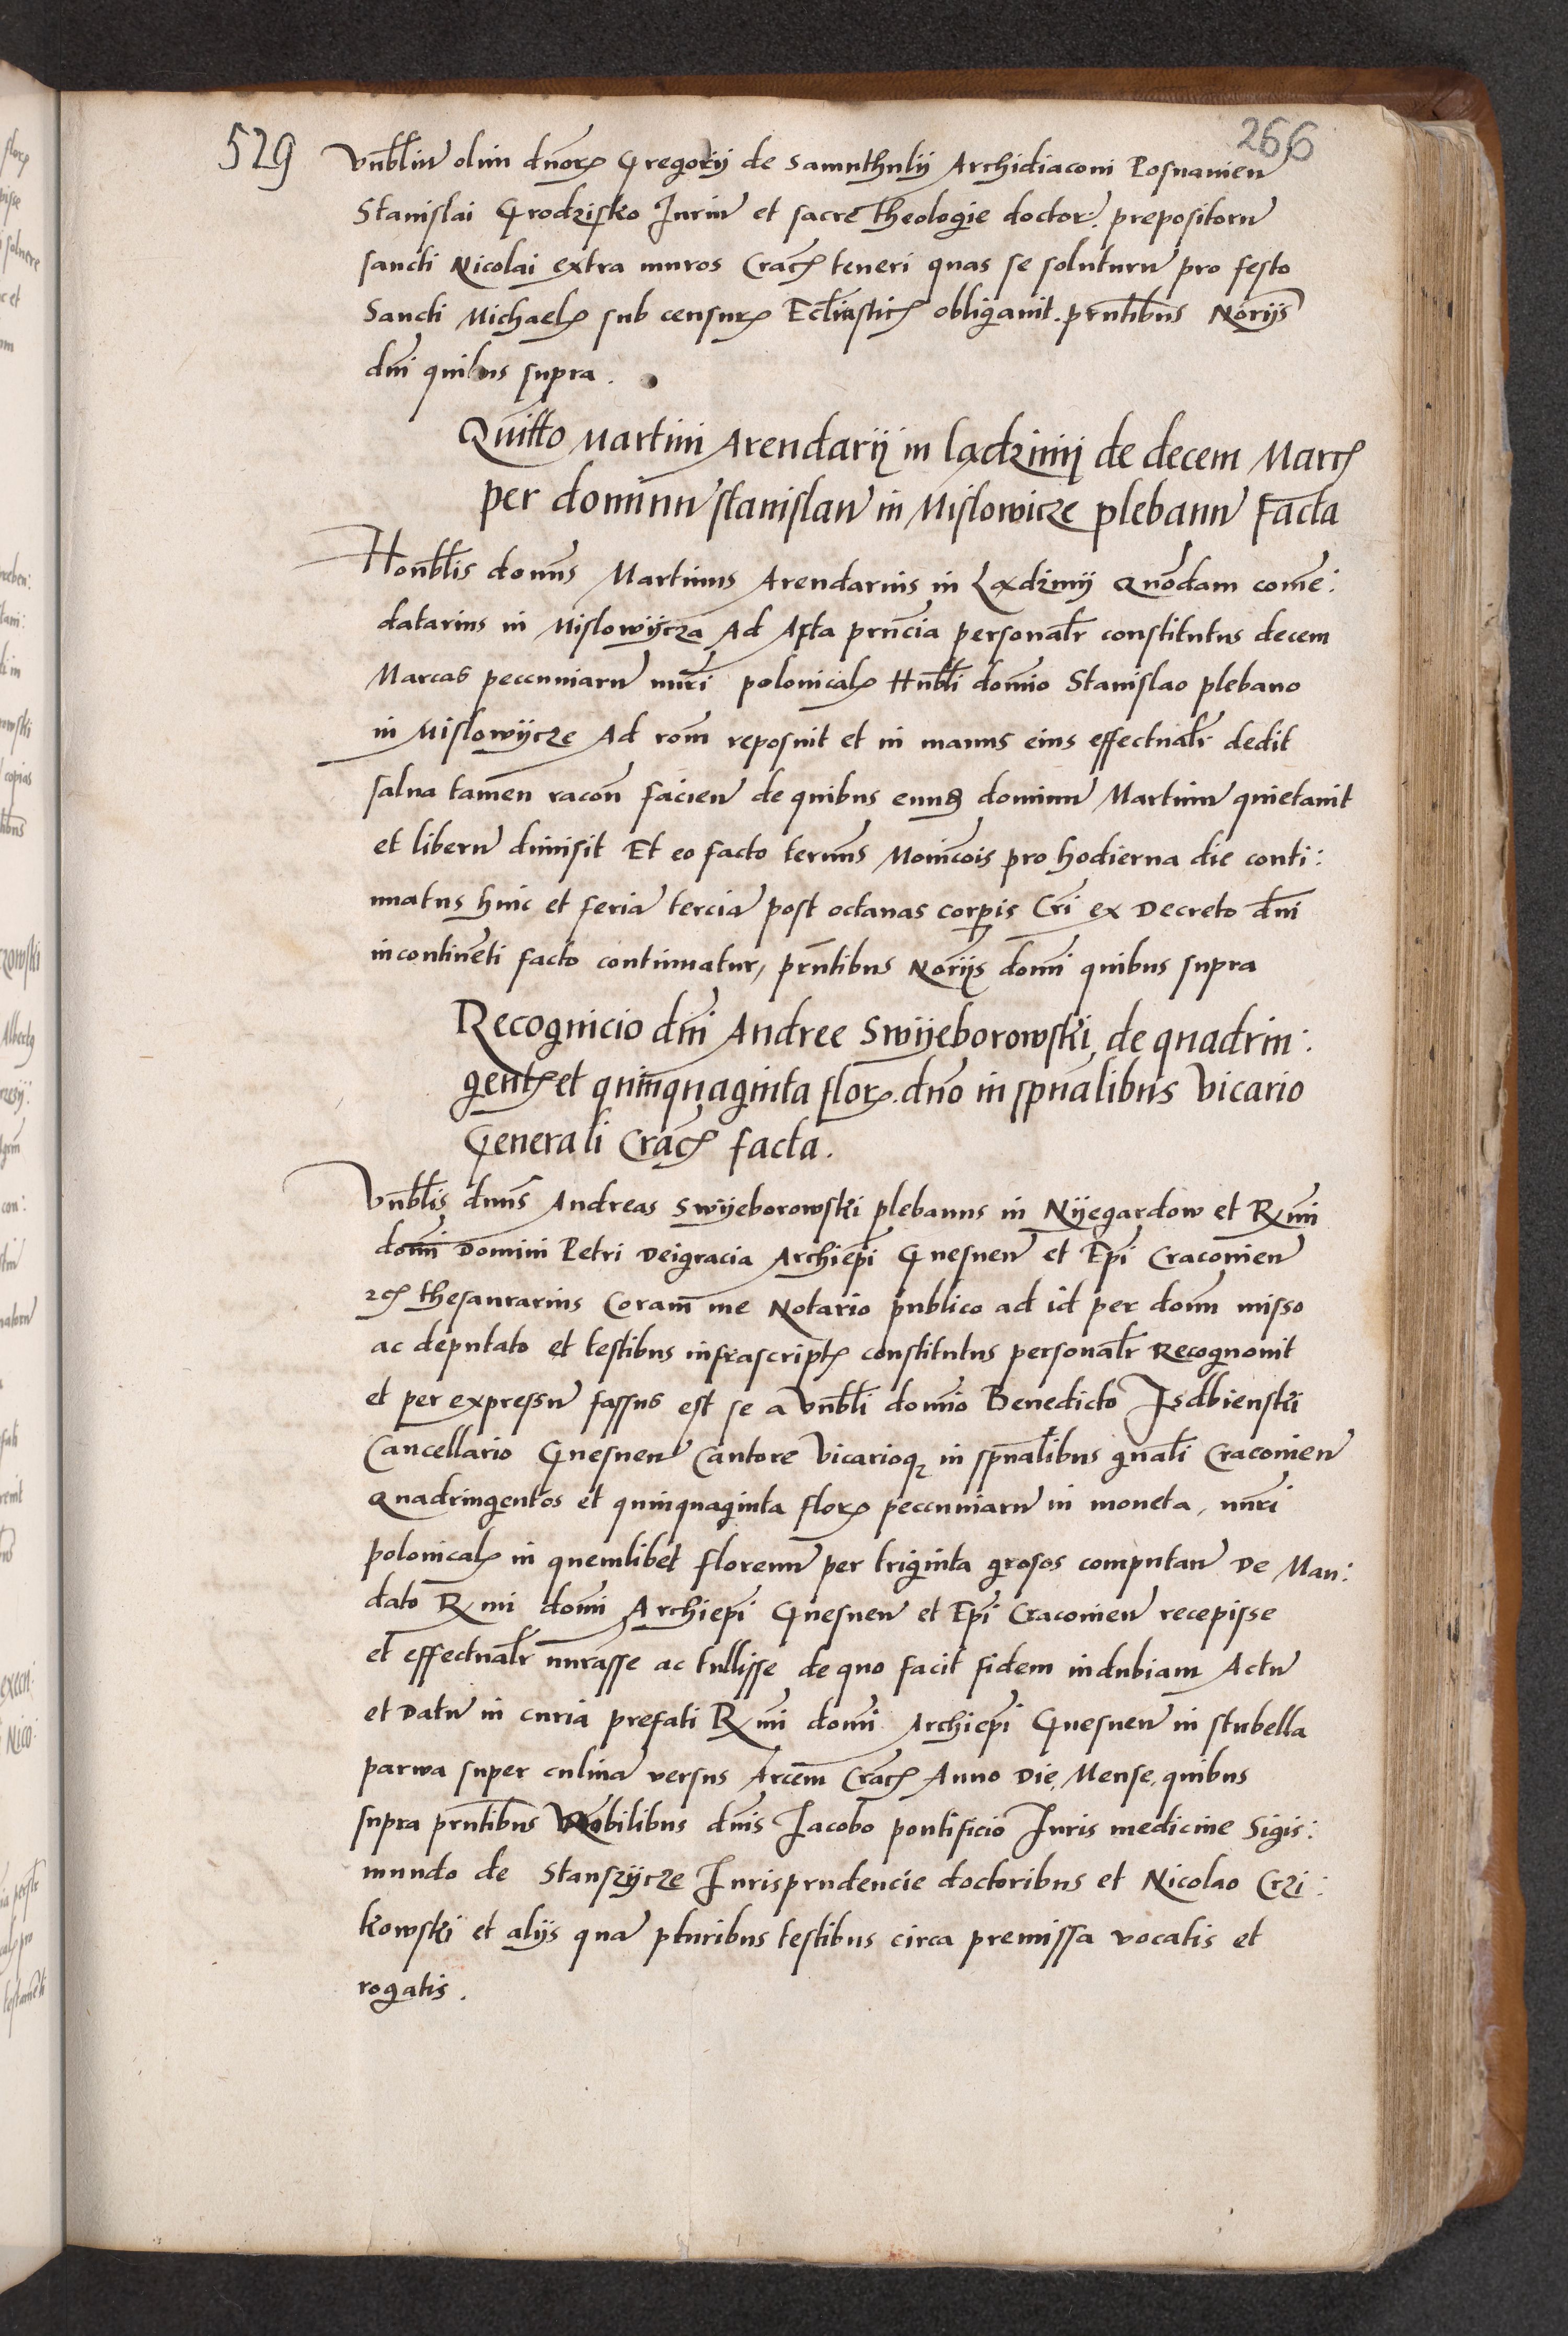 529 266
Vn̄bliū olim dn̄orꝝ Gregorij de Samuthulij Archidiaconi Posnanieñ
Stanislai Grodzisko Juriū et sacre theologie doctor: prepositorū
sancti Nicolai extra muros Crac̄ teneri quas se soluturū pro festo
Sancti Michaelꝭ sub censurꝭ Eccl̄iasticꝭ obligauit. pn̄tibus No͞rijs
dn̄i quibus supra.
Quitt͞o Martini Arendarij in lądzinij de decem Marcꝭ
per dominū stanislaū in Mislowicze plebanū facta
Hon̄blis domn̄s Martinus Arendarius in Lądzinij quo͞dam come͞:
datarius in Mislowijcza Ad Acta pn̄cia personalr̄ constitutus decem
Marcas peccuniarū nūri polonicalꝭ Hn̄bli domi͞o Stanislao plebano
in Mislowijcze Ad rom̄ reposuit et in manus eius effectualr̄ dedit
salua tamen racōn facieñ de quibus eund dominū Martinū quietauit
et liberū dimisit Et eo facto termn̄s Monic͞ois pro hodierna die conti:
nuatus huic et feria tercia post octauas corpis Cr̄i ex Decreto dn̄i
incontine͞ti facto continuatur, pn̄tibus No͞rijs domi͞ quibus supra
Recognicio dn̄i Andree Swijeborowski, de quadrin:
gentꝭ et quinquaginta florꝭ. dn̄o in spūalibus Vicario
Generali Crac̄ facta.
Vn̄blis dnn̄s Andreas Swijeborowski plebanus in Nijegardow et R͞mi
domi͞ Domini Petri Deigracia Archiepi͞ Gnesneñ et Epi͞ Cracouieñ
zcꝭ thesaurarius Coram me Notario publico ad id per domn̄ misso
ac deputato et testibus infrascriptꝭ constitutus personalr̄ Recognouit
et per expressū fassus est se a Vn̄bli domi͞o Benedicto Isdbienski
Cancellario Gnesneñ Cantore Vicarioqꝫ in spūalibus gn̄ali Cracouieñ
Quadringentos et quinquaginta florꝭ peccuniarū in moneta, nūri
polonicalꝭ in quemlibet florenū per triginta grosos computañ De Man:
dato R͞mi domi͞ Archiepi͞ Gnesneñ et Epi͞ Cracouieñ recepisse
et effectualr̄ nūrasse ac tullisse de quo facit fidem indubiam Actū
et Datū in curia prefati R͞mi domi͞ Archiepi͞ Gnesneñ in stubella
parwa super culina versus Arcem Crac̄ Anno Die, Mense, quibus
supra pn̄tibus Nobilibus dn̄is Jacobo pontificio Juris medicine Sigis:
mundo de Stanszijcze Jurisprudencie doctoribus et Nicolao Crzi:
kowski et alijs quā pluribus testibus circa premissa vocatis et
rogatis.